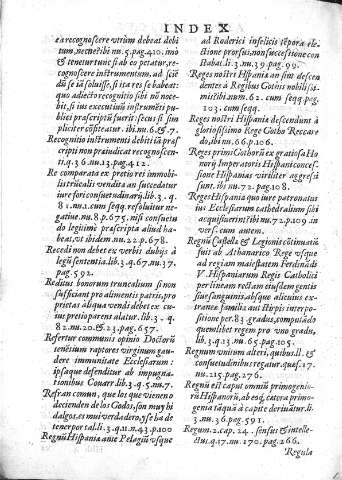 INDEX
ea recognoscere vtrùm debeat debi
tum, necne? ibi nu. 5. pag. 410. imò
& tenetur tunc si ab eo petatur, re-
cognoscere instrumentum, ad sciē
dū se iā soluisse, si ita res se habeat:
quo adiecto recognitio sibi nō noce-
bit, si ius executiuū instrumēti pu-
blici præscriptū fuerit: secus si sim
pliciter cōfiteatur. ibi nu. 6. & 7.
Recognitio instrumenti debiti iā præ
scripti non præiudicat recognoscen-
ti. q. 36. nu. 13. pag. 412.
Re comparata ex pretio rei immobi-
lis trūcalis vendita an succedatur
iure fori consuetudinarij. lib. 3. q.
81. nu. 1. cum seqq. resoluitur ne-
gatiue. nu. 8. p. 675. nisi consuetu
do legitimè præscripta aliud ha-
beat, vt ibidem nu. 22. p. 678.
Recedi non debet ex verbis dubijs à
legū sententia. lib. 3. q. 67. nu. 37.
pag. 592.
Reditus bonorum truncalium si non
sufficiant pro alimentis patris, pro
prietas aliqua vendi debet ex cu-
ius pretio parens alatur. lib. 3. q.
82. nu. 20. & 23. pag. 657.
Refertur communis opinio Doctorū
tenēsium raptores virginum gau-
dere immunitate Ecclesiarum:
ipsaque defenditur ab impugna-
tionibus Couarr. lib. 3. q. 5. nu. 7.
Refran comun, que los que vienen o
decienden de los Godos, son muy hi
dalgos, es mui verdadero, y se ha de
tener por tal. li. 3. q. 11. n. 43. p. 100
Regnū Hispaniæ ante Pelagiū vsque
ad Roderici infelicis tēpora ele-
ctione prorsus, non successione con
stabat. li. 3. nu. 39. pag. 99.
Reges nostri Hispaniæ an sint descē
dentes à Regibus Gothis nobilis-
simis? ibi num. 62. cum seqq. pag.
103. cum seqq.
Reges nostri Hispaniæ descendunt à
gloriosissimo Rege Gotho Reccare
do, ibi nu. 66. p. 106.
Reges primi Gothorū ex gratiosa Ho
norij Imperatoris Hispaniæ conces-
sione Hispanias viriliter aggressi
sunt. ibi nu. 72. pag. 108.
Reges Hispaniæ quo iure patronatus
ius Ecclesiarum cathedralium sibi
acquisierint? ibi nu. 72. p. 109. in
vers. & cum autem.
Regnū Castellæ & Legionis cōtinuatū
fuit ab Athanarico Rege vsque
ad regiam maiestatem Ferdinādi
V. Hispaniarum Regis Catholici
per lineam rectam eiusdem gentis
siue sanguinis, absque alicuius ex-
traneæ familiæ aut stirpis interpo-
sitione per. 83. gradus, computādo
quemlibet regem pro vno gradu,
lib. 3. q. 13. nu. 65. pag. 105.
Regnum vnium alteri, quibus. ll. &
consuetudinibus regatur. quæst. 17.
nu. 215. pag. 276.
Regnū est caput omniū primogenio-
rū Hispanorū, ab eoq́; cætera primo-
genia tāquā à capite deriuātur. li.
3. nu. 36. pag. 591.
Regum. 2. cap. 24. sensus & intelle-
ctus. q. 17. nu. 170. pag. 266.
Regula